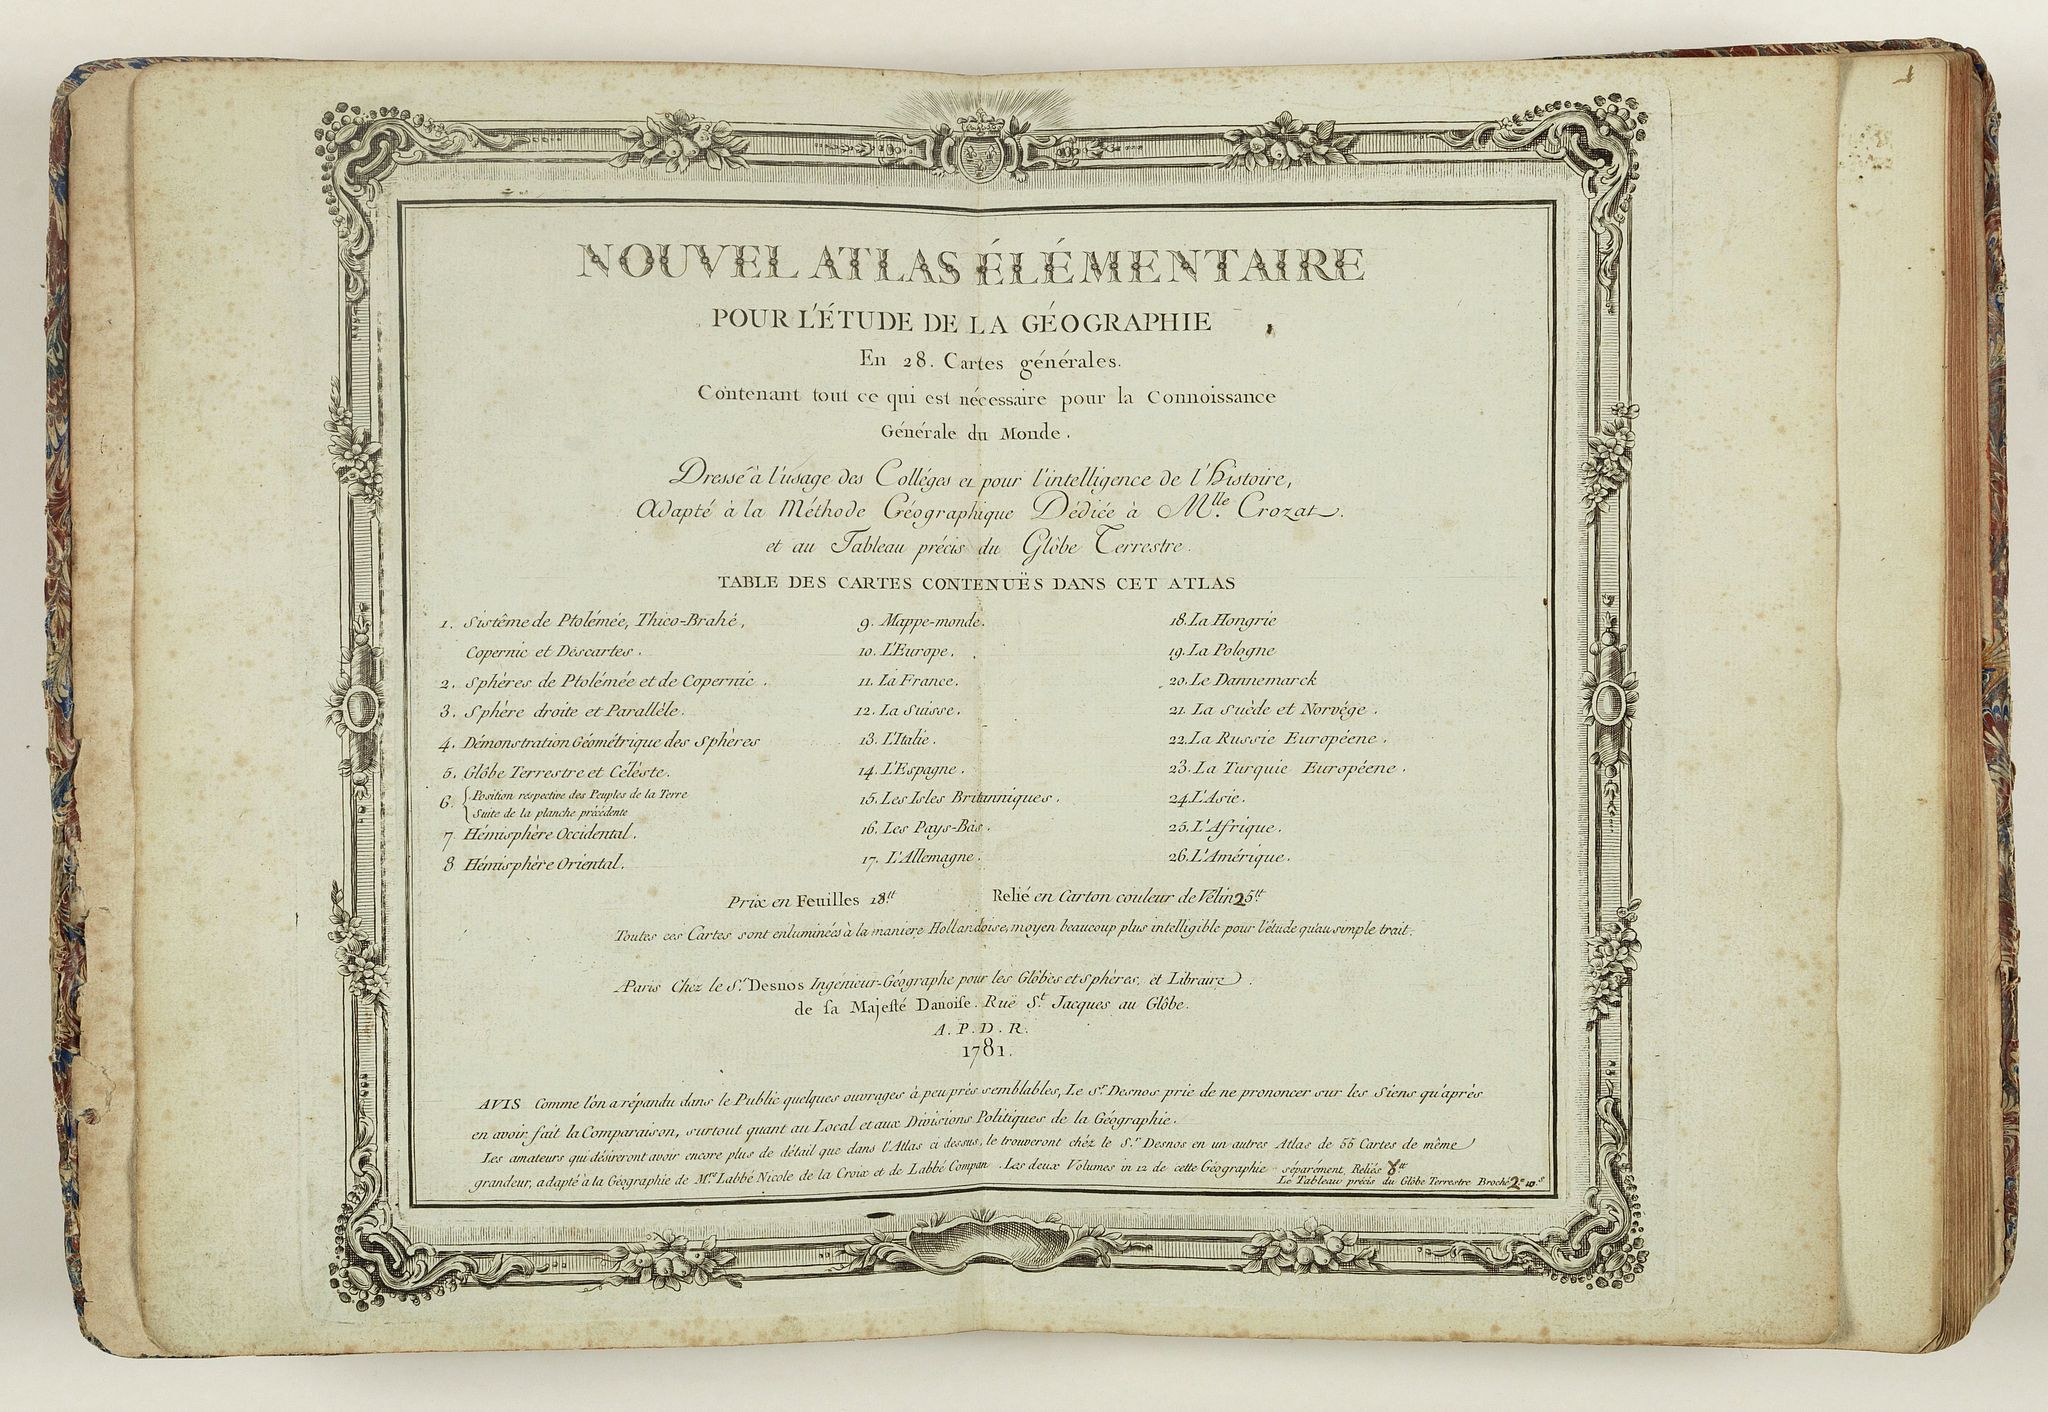 1
NOUVEL ATLAS ÉLÉMENTAIRE
POUR L'ÉTUDE DE LA GÉOGRAPHIE
En 28. Cartes générales.
Contenant tout ce qui est nécessaire pour la Connoissance
Générale du Monde.
Dressé à l'usage des Colléges et pour l'intelligence de l'histoire,
Adapté à la Méthode Géographique Dédiée à M.lle Crozat.
et au Tableau précis du Glôbe Terrestre.
TABLE DES CARTES CONTENUËS DANS CET ATLAS
1. Sistême de Ptolémée, Thico-Brahé,
Copernic et Déscartes.
2. Sphères de Ptolémée et de Copernic.
3. Sphère droite et Parallèle.
4. Démonstration Géométrique des Sphères
5. Glôbe Terrestre et Céleste.
6. Position respective des Peuples de la Terre
Suite de la planche précédente
7 Hémisphère Occidental.
8 Hémisphère Oriental.
9. Mappe-monde.
10. L'Europe.
11. La France.
12. La Suisse.
13. L'Italie.
14. L'Espagne.
15. Les Isles Britanniques.
16. Les Pays-Bas.
17. L'Allemagne.
18. La Hongrie
19. La Pologne
20. Le Dannemarck
21. La Suède et Norvége.
22. La Russie Européene.
23. La Turquie Européene.
24. L'Asie.
25. L'Afrique.
26. L'Amérique.
Prix en Feuilles 18.tt Relié en Carton couleur de Vélin 25tt
Toutes ces Cartes sont enluminées à la maniere Hollandoise, moyen beaucoup plus intelligible pour l'étude qu'au simple trait.
A Paris Chéz le S.r Desnos Ingénieur-Géographe pour les Glôbes et Sphères, et Libraire
de sa Majesté Danoise. Ruë S.t Jacques au Glôbe.
A. P. D. R.
1781.
AVIS Comme l'on a répandu dans le Public quelques ouvrages à peu prés semblables, Le S.r Desnos prie de ne prononcer sur les Siens qu'aprés
en avoir fait la Comparaison, surtout quant au Local et aux Divisions Politiques de la Géographie.
Les amateurs qui désireront avoir encore plus de détail que dans l'Atlas ci dessus, le trouveront chéz le S.r Desnos en un autres Atlas de 55 Cartes de même
grandeur, adapté à la Géographie de M.rs Labbé Nicole de la Croix et de Labbé Compan. Les deux Volumes in 12 de cette Géographie séparément, Reliés 8tt
Le Tableau précis du Glôbe Terrestre Broché 2.tt 10.s